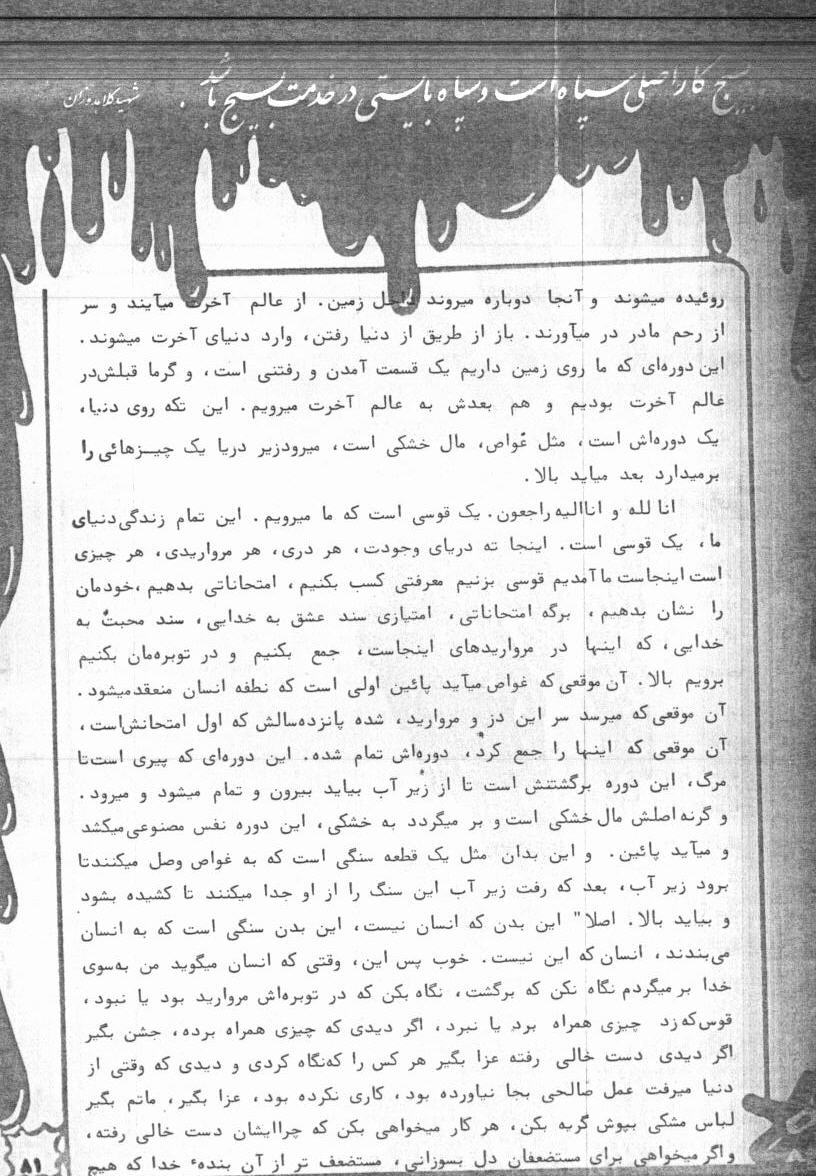 بسیج کار اصلی سپاه است و سپاه بایستی در خدمت بسیج باشد. شهید کلاهدوزان
روئیده میشوند و آنجا دوباره میروند داخل زمین. از عالم آخرت میآیند و سر
از رحم مادر در میآورند. باز از طریق از دنیا رفتن، وارد دنیای آخرت میشوند.
این دوره‌ای که ما روی زمین داریم یک قسمت آمدن و رفتنی است، و گرما قبلش‌در
عالم آخرت بودیم و هم بعدش به عالم آخرت میرویم. این تکه روی دنیا،
یک دوره‌اش است، مثل غواص، مال خشکی است، میرودزیر دریا یک چیـزهائی را
برمیدارد بعد میاید بالا.
انا لله و اناالیه راجعون. یک قوسی است که ما میرویم. این تمام زندگی دنیای
ما، یک قوسی است. اینجا ته دریای وجودت، هر دری، هر مرواریدی، هر چیزی
است اینجاست ما آمدیم قوسی بزنیم معرفتی کسب بکنیم، امتحاناتی بدهیم ،خودمان
را نشان بدهیم، برگه امتحاناتی، امتیازی سند عشق به خدایی، سند محبت به
خدایی، که اینها در مرواریدهای اینجاست، جمع بکنیم و در توبره‌مان بکنیم
برویم بالا. آن موقعی که غواص میآید پائین اولی است که نطفه انسان منعقدمیشود.
آن موقعی که میرسد سر این دز و مروارید، شده پانزده‌سالش که اول امتحانش‌است،
آن موقعی که اینها را جمع کرد، دوره‌اش تمام شده. این دوره‌ای که پیری است‌تا
مرگ، این دوره برگشتنش است تا از زیر آب بیاید بیرون و تمام میشود و میرود.
و گرنه اصلش مال خشکی است و بر میگردد به خشکی، این دوره نفس مصنوعی میکشد
و میآید پائین. و این بدان مثل یک قطعه سنگی است که به غواص وصل میکنندتا
برود زیر آب، بعد که رفت زیر آب این سنگ را از او جدا میکنند تا کشیده بشود
و بیاید بالا. اصلا" این بدن که انسان نیست، این بدن سنگی است که به انسان
می‌بندند، انسان که این نیست. خوب پس این، وقتی که انسان میگوید من به‌سوی
خدا بر میگردم نگاه نکن که برگشت، نگاه بکن که در توبره‌اش مروارید بود یا نبود،
قوس‌که زد چیزی همراه برد یا نبرد، اگر دیدی که چیزی همراه برده، جشن بگیر
اگر دیدی دست خالی رفته عزا بگیر هر کس را که‌نگاه کردی و دیدی که وقتی از
دنیا میرفت عمل صالحی بجا نیاورده بود، کاری نکرده بود، عزا بگیر، ماتم بگیر
لباس مشکی بپوش گریه بکن، هر کار میخواهی بکن که چراایشان دست خالی رفته،
و اگر میخواهی برای مستضعفان دل بسوزانی، مستضعف تر از آن بنده‌ٔ خدا که هیچ
۸۱